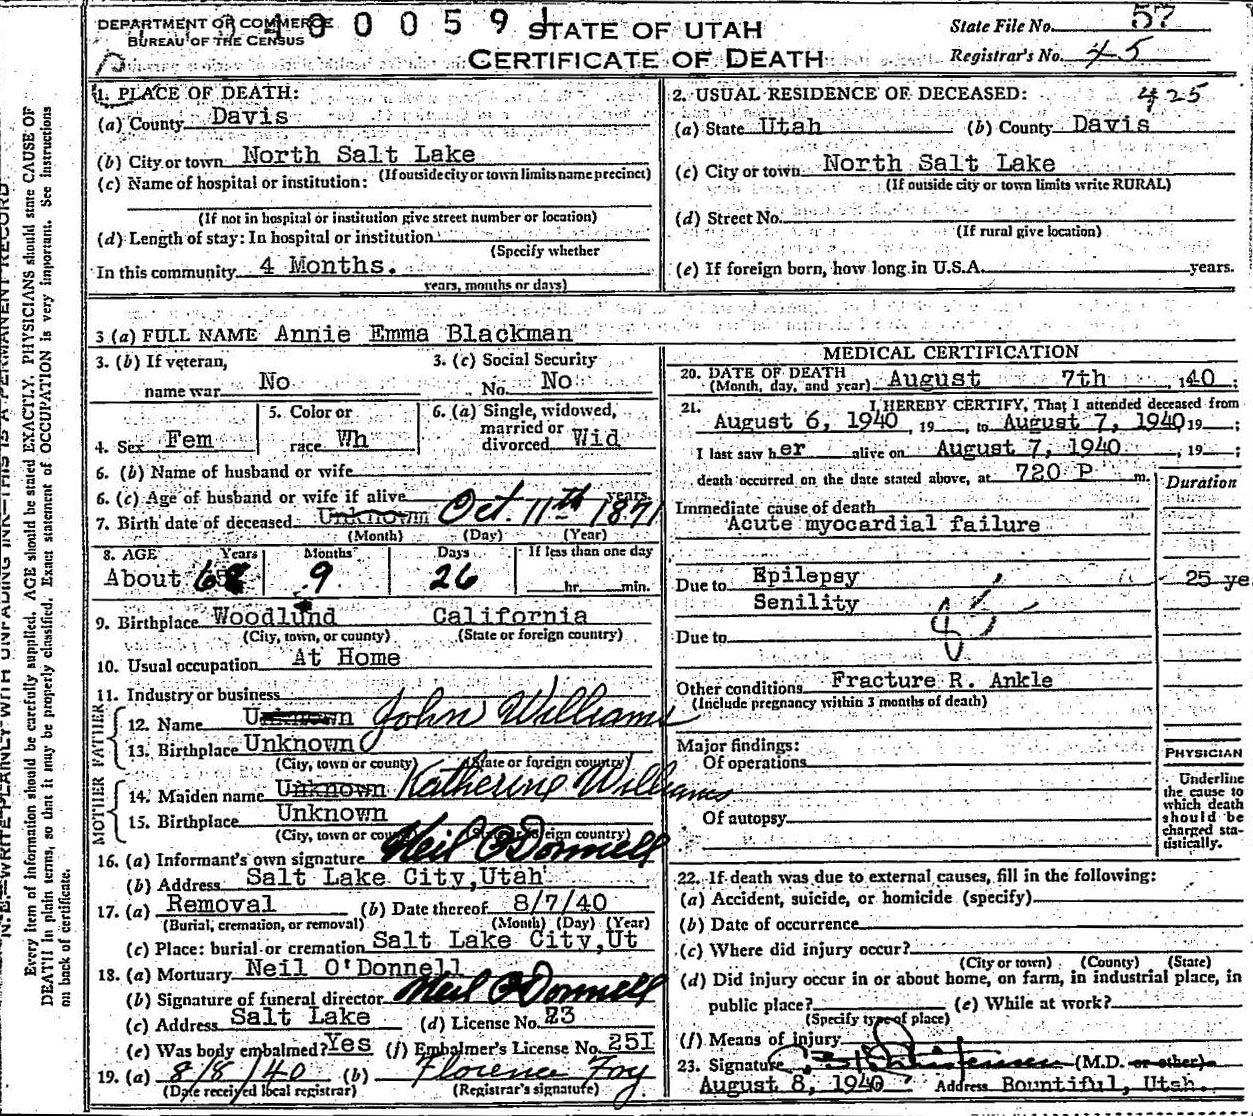 DEPARTMENT OF COMMERCE
BUREAU OF THE CENSUS
400059
STATE OF UTAH
CERTIFICATE OF DEATH
State File No. 57
Registrar's No. 45
1. PLACE OF DEATH:
(a) County Davis
(b) City or town North Salt Lake
(If outside city or town limits name precinct)
(c) Name of hospital or institution:
(If not in hospital or institution give street number or location)
(d) Length of stay: In hospital or institution
(Specify whether
In this community 4 Months.
years, months or days)
2. USUAL RESIDENCE OF DECEASED: 425
(a) State Utah (b) County Davis
(c) City or town North Salt Lake
(If outside city or town limits write RURAL)
(d) Street No.
(If rural give location)
(e) If foreign born, how long in U.S.A. years.
3 (a) FULL NAME Annie Emma Blackman
3. (b) If veteran, name war No
3. (c) Social Security No. No
4. Sex Fem
5. Color or race Wh
6. (a) Single, widowed, married or divorced Wid
6. (b) Name of husband or wife
6. (c) Age of husband or wife if alive years
7. Birth date of deceased Unknown Oct. 11th 1871
(Month) (Day) (Year)
8. AGE Years Months Days If less than one day
About 68 9 26 hr. min.
9. Birthplace Woodlund California
(City, town, or county) (State or foreign country)
10. Usual occupation At Home
11. Industry or business
FATHER
12. Name Unknown John Williams
13. Birthplace Unknown
(City, town or county) (State or foreign country)
MOTHER
14. Maiden name Unknown Katherine Williams
15. Birthplace Unknown
(City, town or county) (State or foreign country)
16. (a) Informant's own signature Neil O'Donnell
(b) Address Salt Lake City, Utah
17. (a) Removal (b) Date thereof 8/7/40
(Burial, cremation, or removal) (Month) (Day) (Year)
(c) Place: burial or cremation Salt Lake City, Ut
18. (a) Mortuary Neil O'Donnell
(b) Signature of funeral director Neil O'Donnell
(c) Address Salt Lake (d) License No. 23
(e) Was body embalmed? Yes (f) Embalmer's License No. 251
19. (a) 8/8/40 (b) Florence Foy
(Date received local registrar) (Registrar's signature)
MEDICAL CERTIFICATION
20. DATE OF DEATH
(Month, day, and year) August 7th , 1940 ;
21. I HEREBY CERTIFY, That I attended deceased from
August 6, 1940 , 19 , to August 7, 1940 19 ;
I last saw her alive on August 7, 1940 , 19 ;
death occurred on the date stated above, at 720 P m.
Duration
Immediate cause of death
Acute myocardial failure
Due to Epilepsy 25 ye
Senility
Due to
Other conditions Fracture R. Ankle
(Include pregnancy within 3 months of death)
Major findings:
Of operations
Of autopsy
PHYSICIAN
Underline
the cause to
which death
should be
charged sta-
tistically.
22. If death was due to external causes, fill in the following:
(a) Accident, suicide, or homicide (specify)
(b) Date of occurrence
(c) Where did injury occur?
(City or town) (County) (State)
(d) Did injury occur in or about home, on farm, in industrial place, in
public place? (e) While at work?
(Specify type of place)
(f) Means of injury
23. Signature (M.D. or other)
August 8, 1940 Address Bountiful, Utah.
N. B.—WRITE PLAINLY WITH UNFADING INK—THIS IS A PERMANENT RECORD
Every item of information should be carefully supplied. AGE should be stated EXACTLY. PHYSICIANS should state CAUSE OF
DEATH in plain terms, so that it may be properly classified. Exact statement of OCCUPATION is very important. See instructions
on back of certificate.